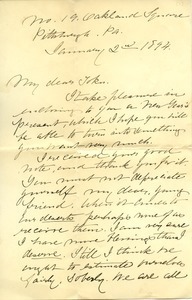 No. 19. Oakland Square
Pittsburgh. Pa.
January 2nd 1894.
My dear
I take pleasure in
enclosing to you a New Year's
present, which I hope you will
be able to turn into something
you want very much.
I received your good
note, and thank you for it
You must not depreciate
yourself my dear, young
friend. When it comes to
our deserts perhaps none of us
receive them. I am very sure
I have more blessings than I
deserve. Still I think we
ought to estimate ourselves
fairly, soberly. We are all